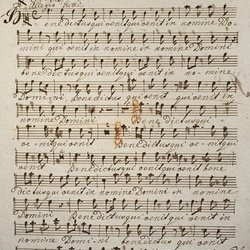 Benedictus qui venit in nomine Do-
mini qui venit in nomine in nomine Domini
benedictus qui venit in no- mine
Domini Benedictus qui venit qui venit in
nomine Domini Benedictus qui
venit qui venit
Benedictus qui venit qui venit bene
dictus qui venit in nomine Domini in nomine
Domini Benedictus qui venit qui venit in no
mine Domini benedictus qui venit